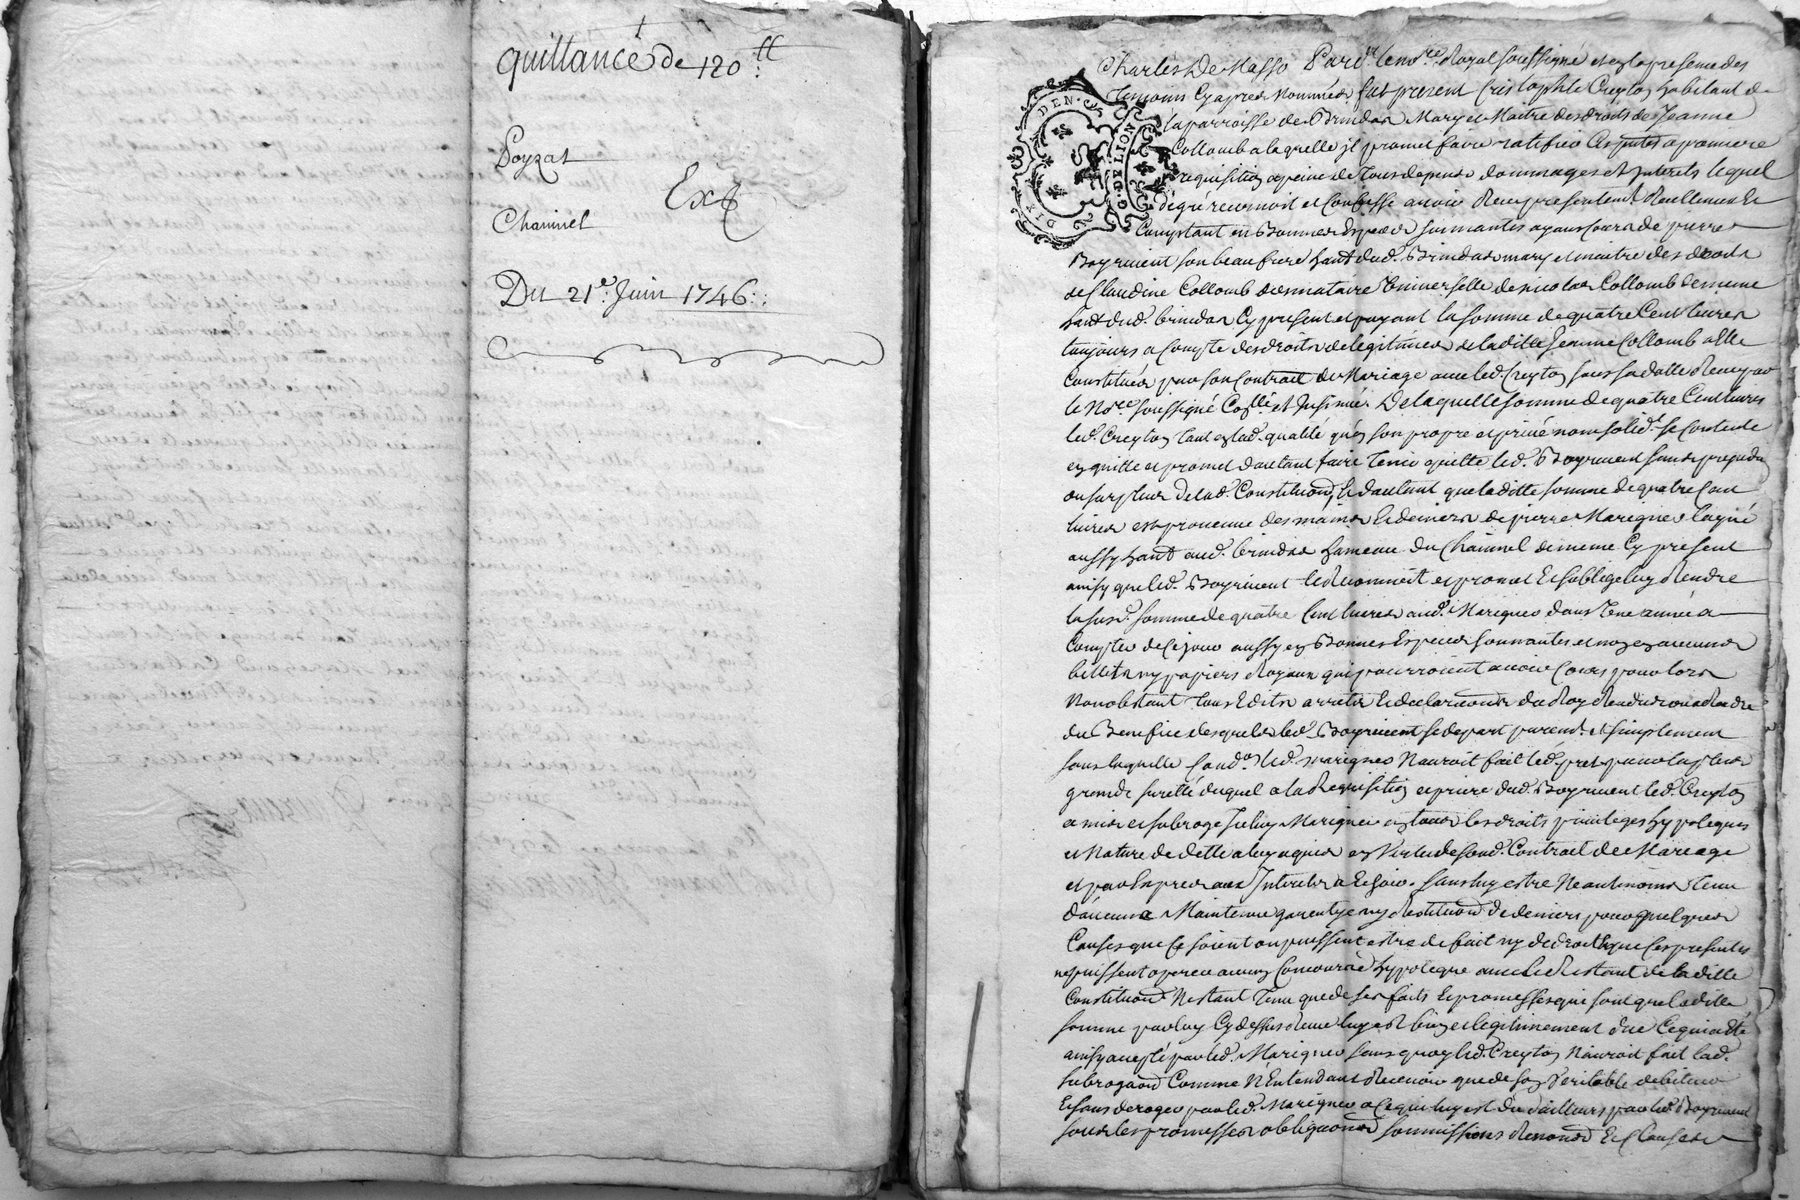 quittance de 120 ll
Poyzat
Ext
Chaninel
Du 21e Juin 1746
Pardt le nore Royal soussigné et en la presence des
temoins cy apres nommés fut present Cristophle Creyton habitant de
la parroisse de Brindas Mary et Maitre des droits de Jeanne
Collomb a laquelle il promet faire ratifier a premiere
requisition a peine de tous depens dommages et interets lequel
de gré reconnoit et confesse avoir Receu presentement Reellement et
Comptant en Bonnes Especes sonnantes ayans cours de pierre
Boyrivent son beau frere hant dud. Brindas mary et maitre des droits
de Claudine Collomb donnataire Universelle de nicolas Collomb de meme
hant dud. brindas Cy present et payant la somme de quatre Cent livres
toujours a Compte des droits de legitimes de laditte Jeanne Collomb a Elle
Constitués par son Contrat de Mariage avec led. Creyton sous sa datte Receu par
le Nore soussigné Coллé et Insinué De laquelle somme de quatre Cent livres
led. Creyton tant en lad. qualité qu'en son propre et privé nom solidt se Contente
en quitte et promet d'autant faire tenir quitte led. Boyrivent sans prejudice
du surplus de lad. Constituon, Et d'autant que laditte somme de quatre Cent
livres est provenue des mains et deniers de pierre Marignier layné
aussy hant aud. brindas hameau du Chaninel de meme Cy present
ainsy que led. Boyrivent le Reconnoit et promet Et s'oblige luy Rendre
la susd. somme de quatre Cent livres aud. Marignier dans Une année a
Compter de Ce jour aussy en Bonnes Especes sonnantes et non en aucuns
billets ny papiers Royaux qui pourroient avoir Cours pour lors
Nonobstant tous Edits arrets Et declarations du Roy Rendus ou a Rendre
du Benefice desquels led. Boyrivent se depart puremt. et simplement
sans laquelle Cond.on led. Marignier N'auroit fait led. pret pour la plus
grande sureté duquel a la Requisition et priere dud. Boyrivent led. Creyton
a mis et subrogé Icelluy Marignier en tous les droits privileges hypoteques
et Nature de dette a luy aquis en Vertu de sond. Contract de Mariage
sans luy estre Neantmoins tenu
d'aucune Maintenue garentye ny Restituon de deniers pour quelques
Causes que Ce soient ou puissent estre de fait ny de droit Et que Ces presentes
ne puissent operer aucun Concours d'hypoteque avec Le Restant de laditte
Constituon N'estant tenu que de ses faits Et promesses qui sont que laditte
somme par luy Cy dessus Receue luy est bien et legitimement due Ce qui a été
ainsy accepté par led. Marignier sans quoy led. Creyton N'auroit fait lad.
subrogaon Comme N'Entendant Recevoir que de son Veritable debiteur
Et sans deroger par led. Marignier a Ce qui luy est du d'ailleurs par led. Boyrivent
sous les promesses obligaons soumissions Renonons Et Clauses